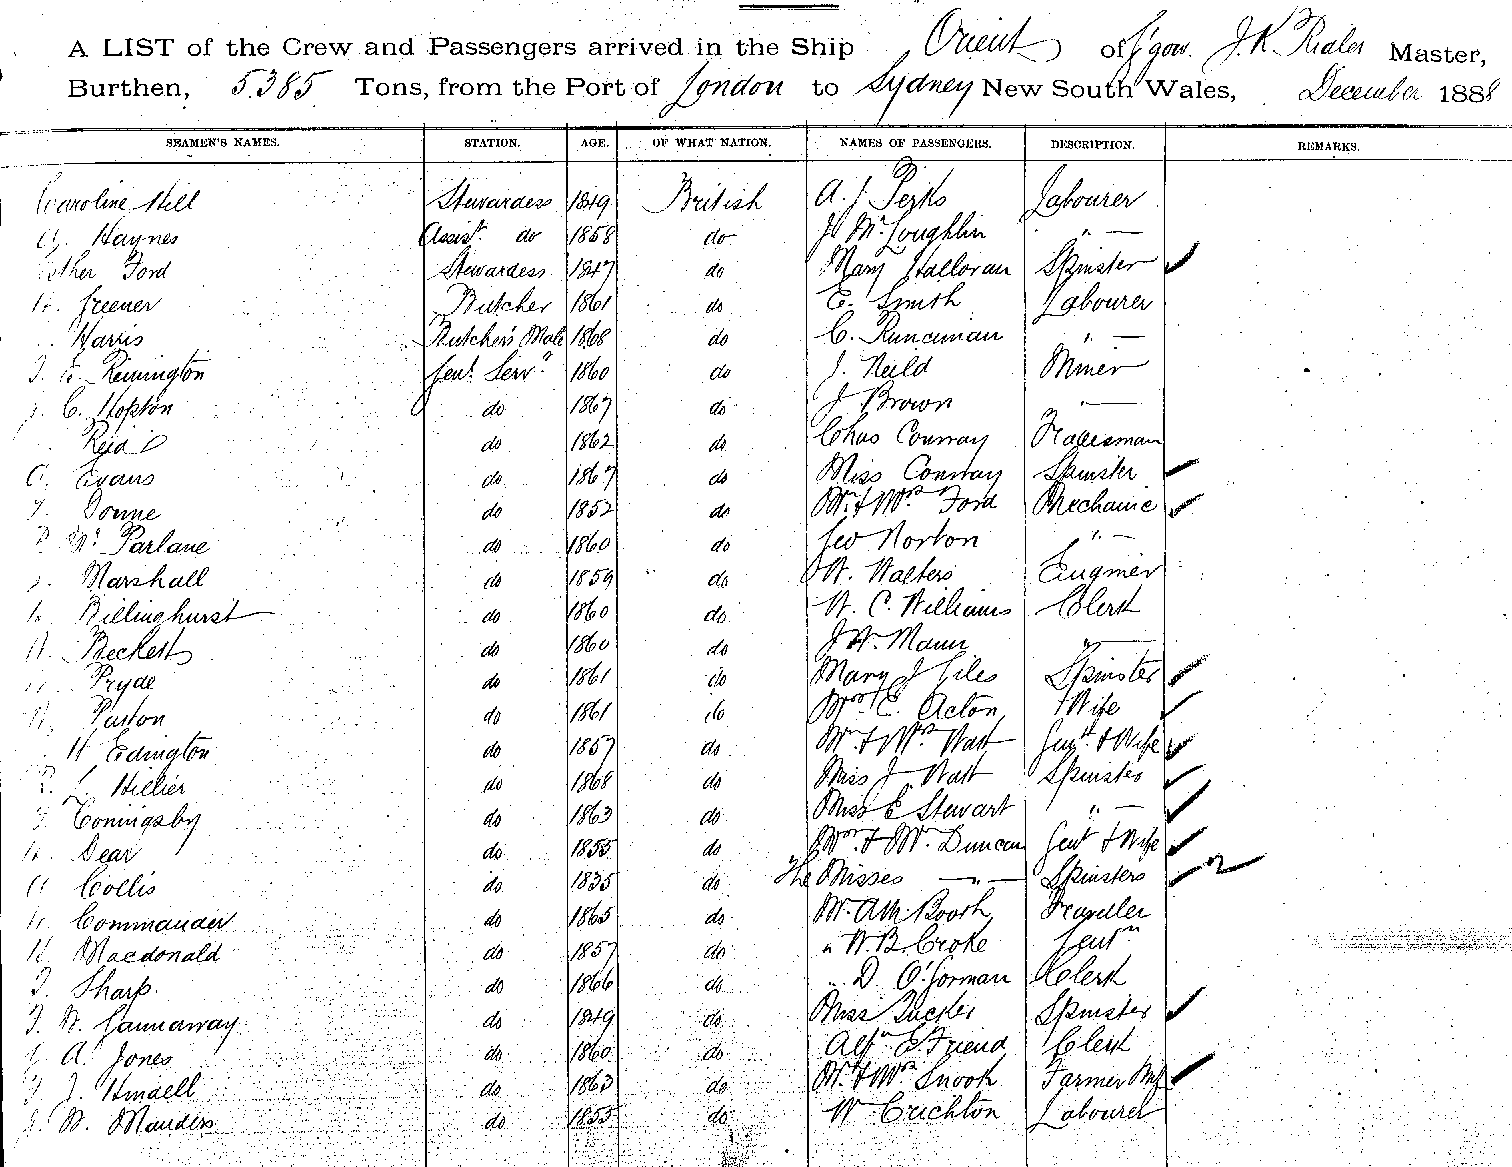 A LIST of the Crew and Passengers arrived in the Ship Orient of G'gow. J. K. Ridler Master,
Burthen, 5.385 Tons, from the Port of London to Sydney New South Wales, December 1888
SEAMEN'S NAMES. STATION. AGE. OF WHAT NATION. NAMES OF PASSENGERS. DESCRIPTION. REMARKS.
Caroline Hill Stewardess 1849 British A. J. Perks Labourer
Haynes Assist. do 1858 do J. McLoughlin " —
Esther Ford Stewardess 1847 do Mary Halloran Spinster ✓
Greener Butcher 1861 do E. Smith Labourer
Harris Butcher's Mate 1868 do C. Runciman " —
Remington Genl. Servt. 1860 do J. Neild Miner
C. Hopton do 1867 do J Brown " —
Reid do 1862 do Chas Conway Tradesman
Evans do 1867 do Miss Conway Spinster ✓
Donne do 1852 do Mr. & Mrs. Ford Mechanic ✓
Mc Parlane do 1860 do Geo Norton " —
Marshall do 1859 do W. Walters Enginer
Billinghurst do 1860 do W. C. Williams Clerk
Beckett do 1860 do J. W. Mann " —
Pryde do 1861 do Mary J Giles Spinster ✓
Paston do 1861 do Mrs E. Acton Wife ✓
H Edington do 1857 do Mr. & Mrs. Watt Gent. & Wife ✓
L. Hillier do 1868 do Miss J Watt Spinster ✓
Coningsby do 1863 do Miss E Stewart " — ✓
Dear do 1855 do Mr. & Mrs. Duncan Gent & Wife ✓
Collis do 1835 do The Misses — " — Spinsters ✓ 2
Commander do 1865 do Mr. Booth Traveller
Macdonald do 1857 do " W. B. Croke Gentn
Sharp. do 1866 do " D O'Gorman Clerk
W. Gannaway do 1849 do Miss Tucker Spinster ✓
A. Jones do 1860 do Alf. E Friend Clerk
J. Hindell do 1863 do Mr. & Mrs. Snook Farmer Wife ✓
W. Manders do 1855 do W Crichton Labourer